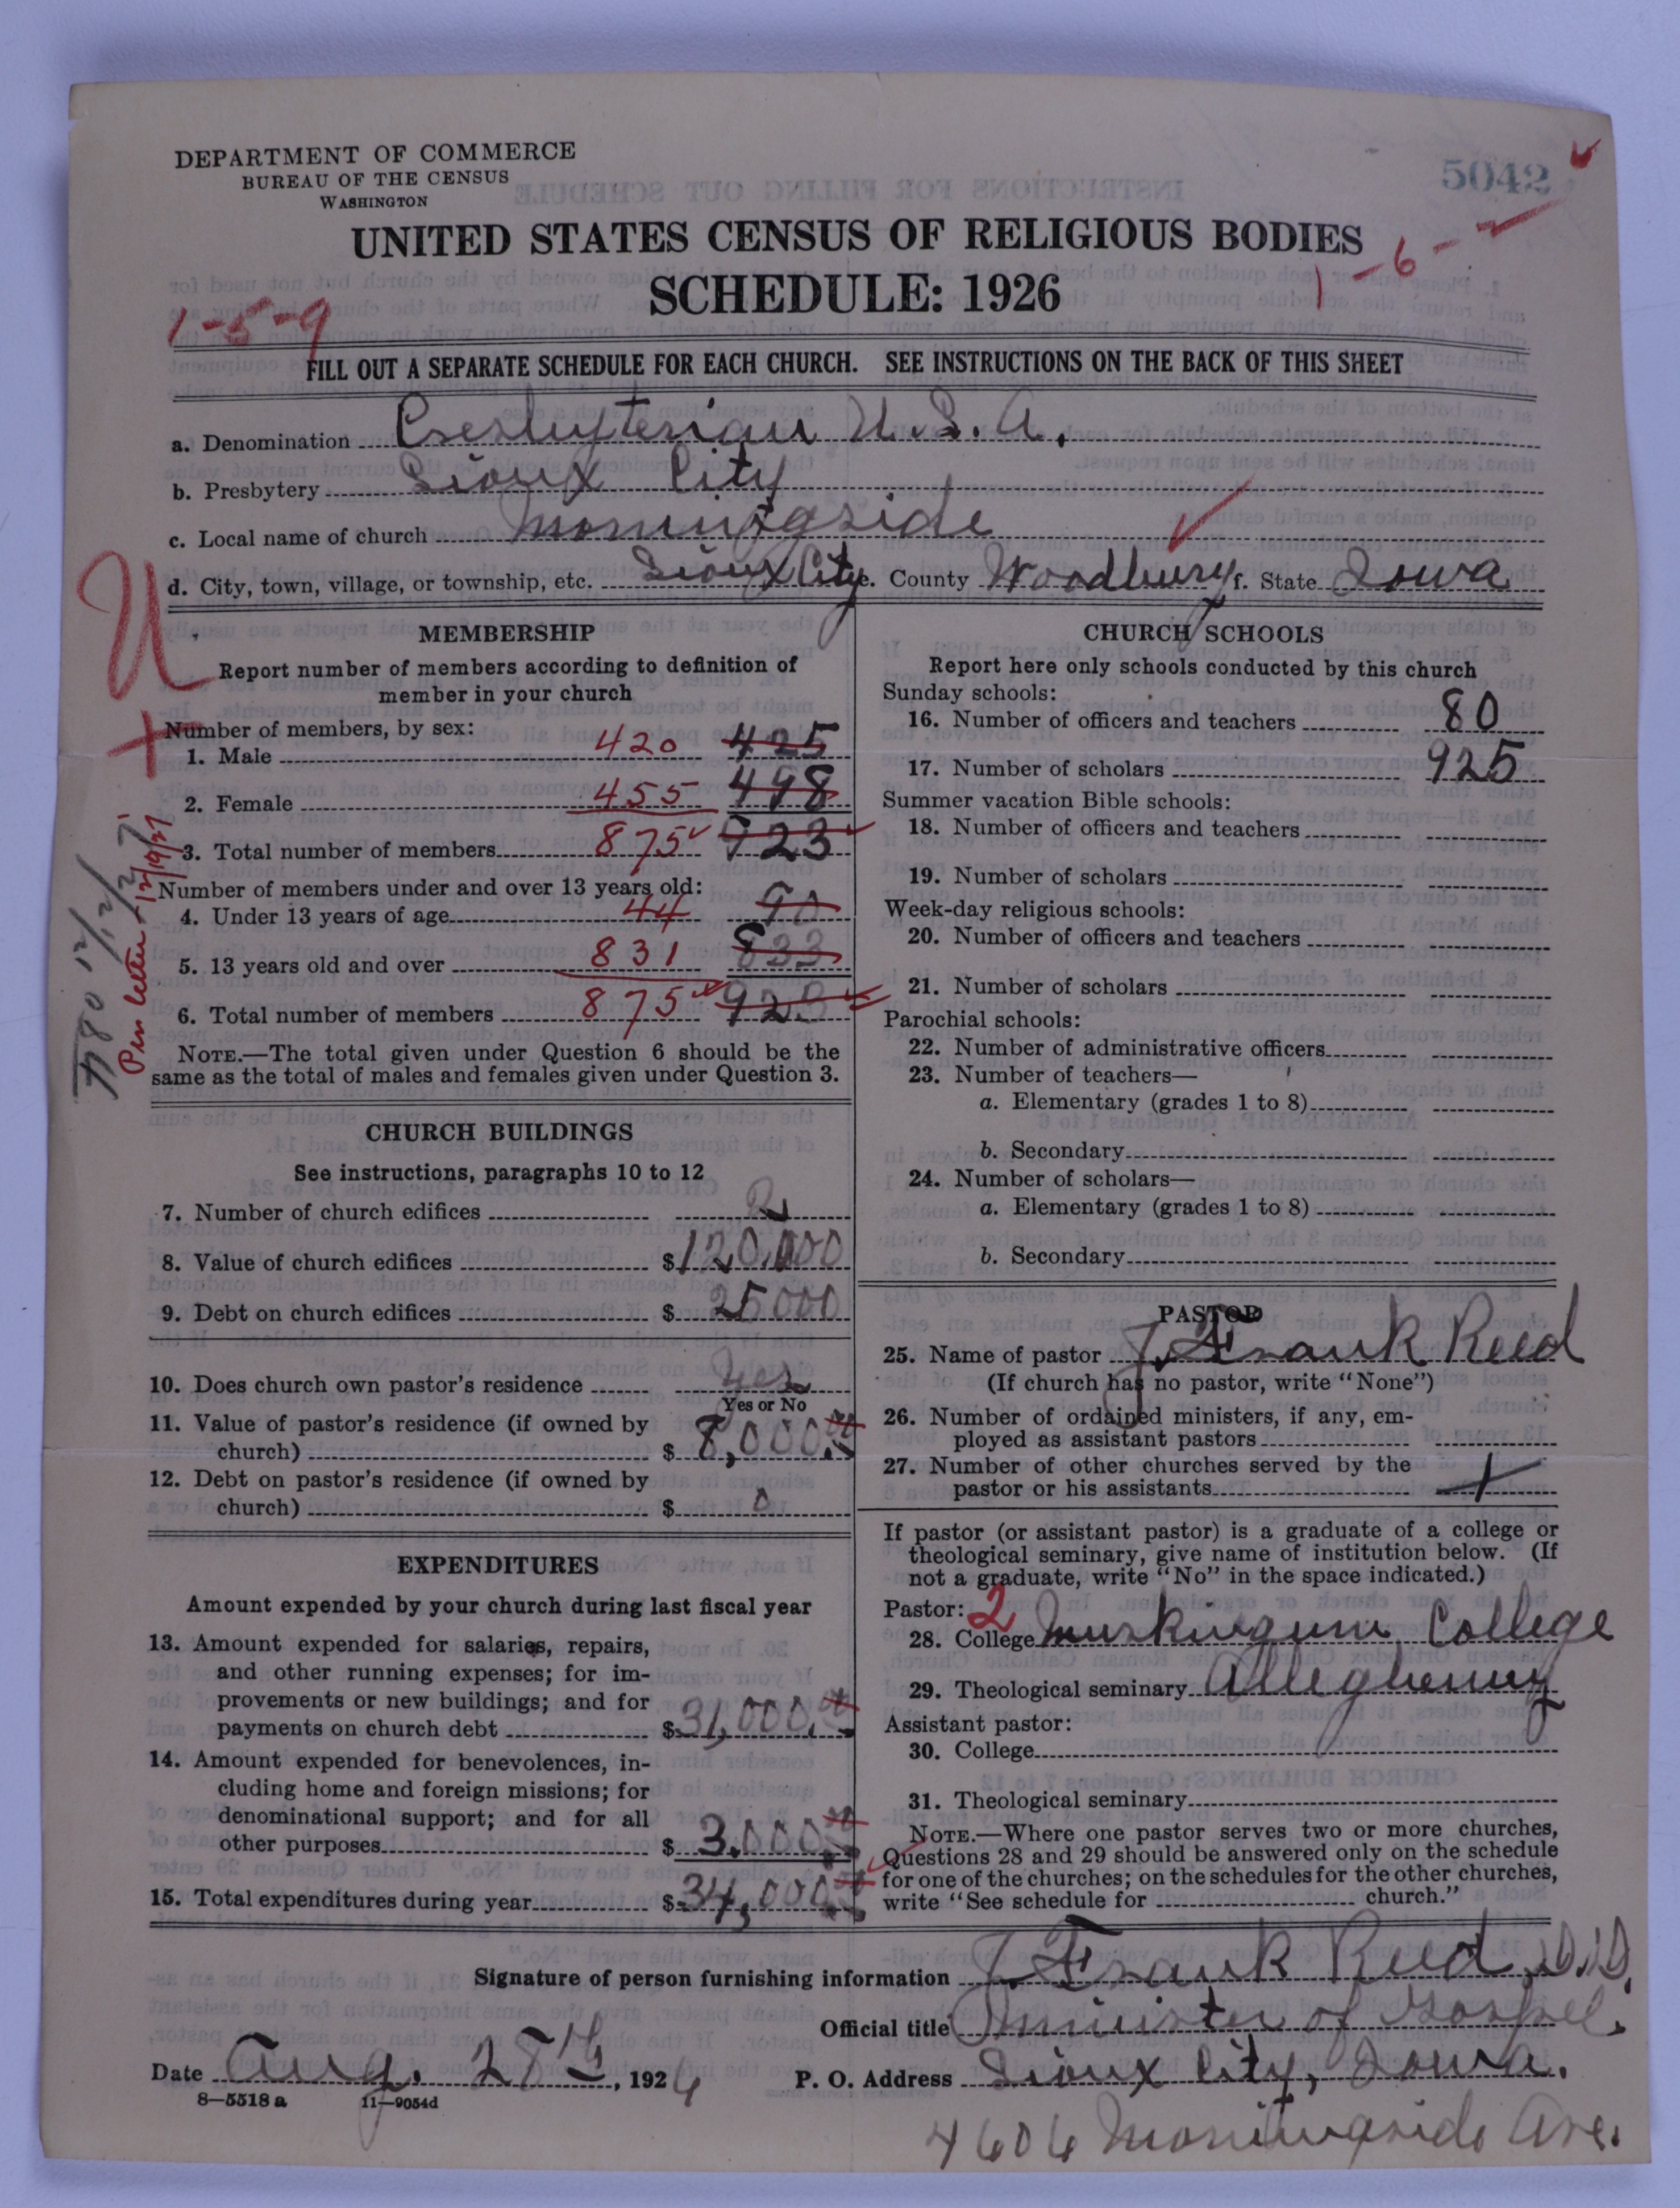 DEPARTMENT OF COMMERCE
BUREAU OF THE CENSUS
WASHINGTON
5042
UNITED STATES CENSUS OF RELIGIOUS BODIES
SCHEDULE: 1926
1-5-9
1-6-
FILL OUT A SEPARATE SCHEDULE FOR EACH CHURCH. SEE INSTRUCTIONS ON THE BACK OF THIS SHEET
a. Denomination Presbyterian U.S.A.
b. Presbytery Sioux City
c. Local name of church Morningside
d. City, town, village, or township, etc. Sioux City e. County Woodbury f. State Iowa
U
MEMBERSHIP
Report number of members according to definition of
member in your church
Number of members, by sex:
1. Male 420 425
2. Female 455 498
3. Total number of members 875 923
Number of members under and over 13 years old:
4. Under 13 years of age 44 90
5. 13 years old and over 831 833
6. Total number of members 875 923
NOTE.—The total given under Question 6 should be the
same as the total of males and females given under Question 3.
Per letter 12/19/27
CHURCH BUILDINGS
See instructions, paragraphs 10 to 12
7. Number of church edifices 2
8. Value of church edifices $120,000
9. Debt on church edifices $25000
10. Does church own pastor's residence Yes
Yes or No
11. Value of pastor's residence (if owned by
church) $8,000.00
12. Debt on pastor's residence (if owned by
church) $0
EXPENDITURES
Amount expended by your church during last fiscal year
13. Amount expended for salaries, repairs,
and other running expenses; for im-
provements or new buildings; and for
payments on church debt $31,000.
14. Amount expended for benevolences, in-
cluding home and foreign missions; for
denominational support; and for all
other purposes $3.000
15. Total expenditures during year $34,000
CHURCH SCHOOLS
Report here only schools conducted by this church
Sunday schools:
16. Number of officers and teachers 80
17. Number of scholars 925
Summer vacation Bible schools:
18. Number of officers and teachers
19. Number of scholars
Week-day religious schools:
20. Number of officers and teachers
21. Number of scholars
Parochial schools:
22. Number of administrative officers
23. Number of teachers—
a. Elementary (grades 1 to 8)
b. Secondary
24. Number of scholars—
a. Elementary (grades 1 to 8)
b. Secondary
PASTOR
25. Name of pastor J. Frank Reed
(If church has no pastor, write "None")
26. Number of ordained ministers, if any, em-
ployed as assistant pastors
27. Number of other churches served by the
pastor or his assistants
If pastor (or assistant pastor) is a graduate of a college or
theological seminary, give name of institution below. (If
not a graduate, write "No" in the space indicated.)
Pastor: 2
28. College Muskingum College
29. Theological seminary Allegheny
Assistant pastor:
30. College
31. Theological seminary
NOTE.—Where one pastor serves two or more churches,
Questions 28 and 29 should be answered only on the schedule
for one of the churches; on the schedules for the other churches,
write "See schedule for church."
Signature of person furnishing information J. Frank Reed, D.D.
Official title Minister of Gospel.
Date Aug. 28th, 1926
P. O. Address Sioux City, Iowa.
8—5518 a 11—9054d
4606 Morningside Ave.